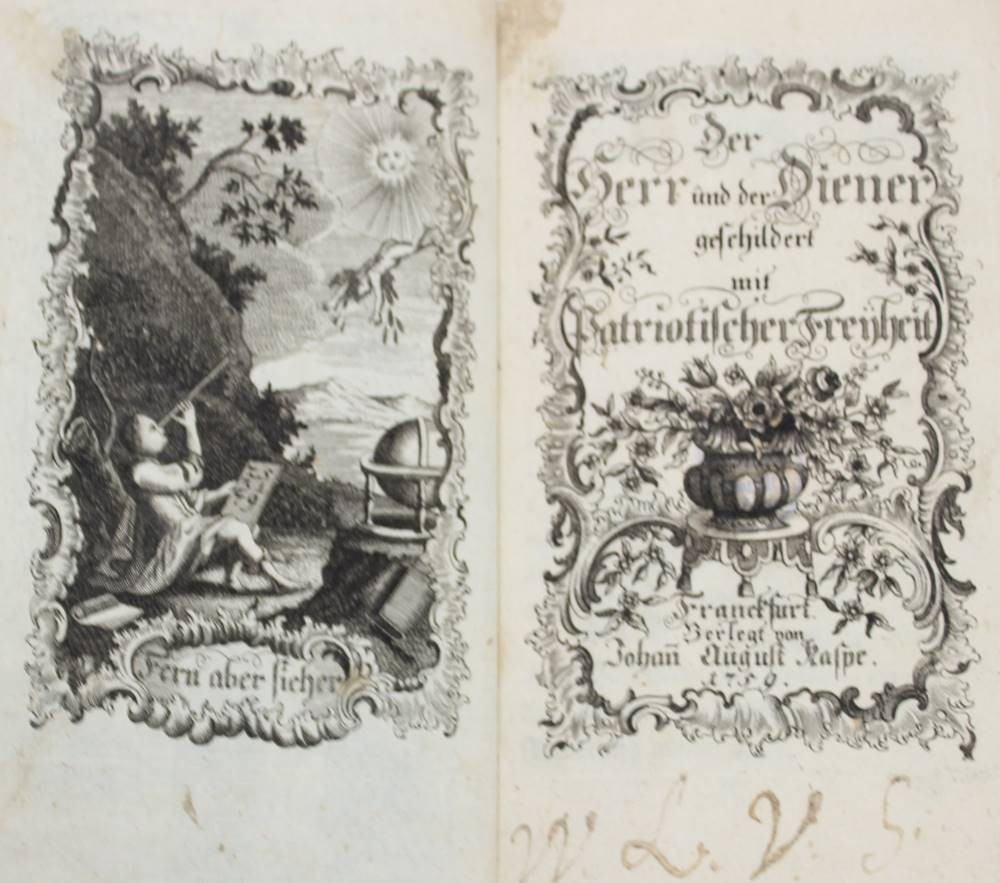 Fern aber sicher
Der
Herr und der Diener
geschildert
mit
Patriotischer Freyheit
Franckfurt.
Verlegt von
Johañ August Raspe.
1759.
W. L. V. S.